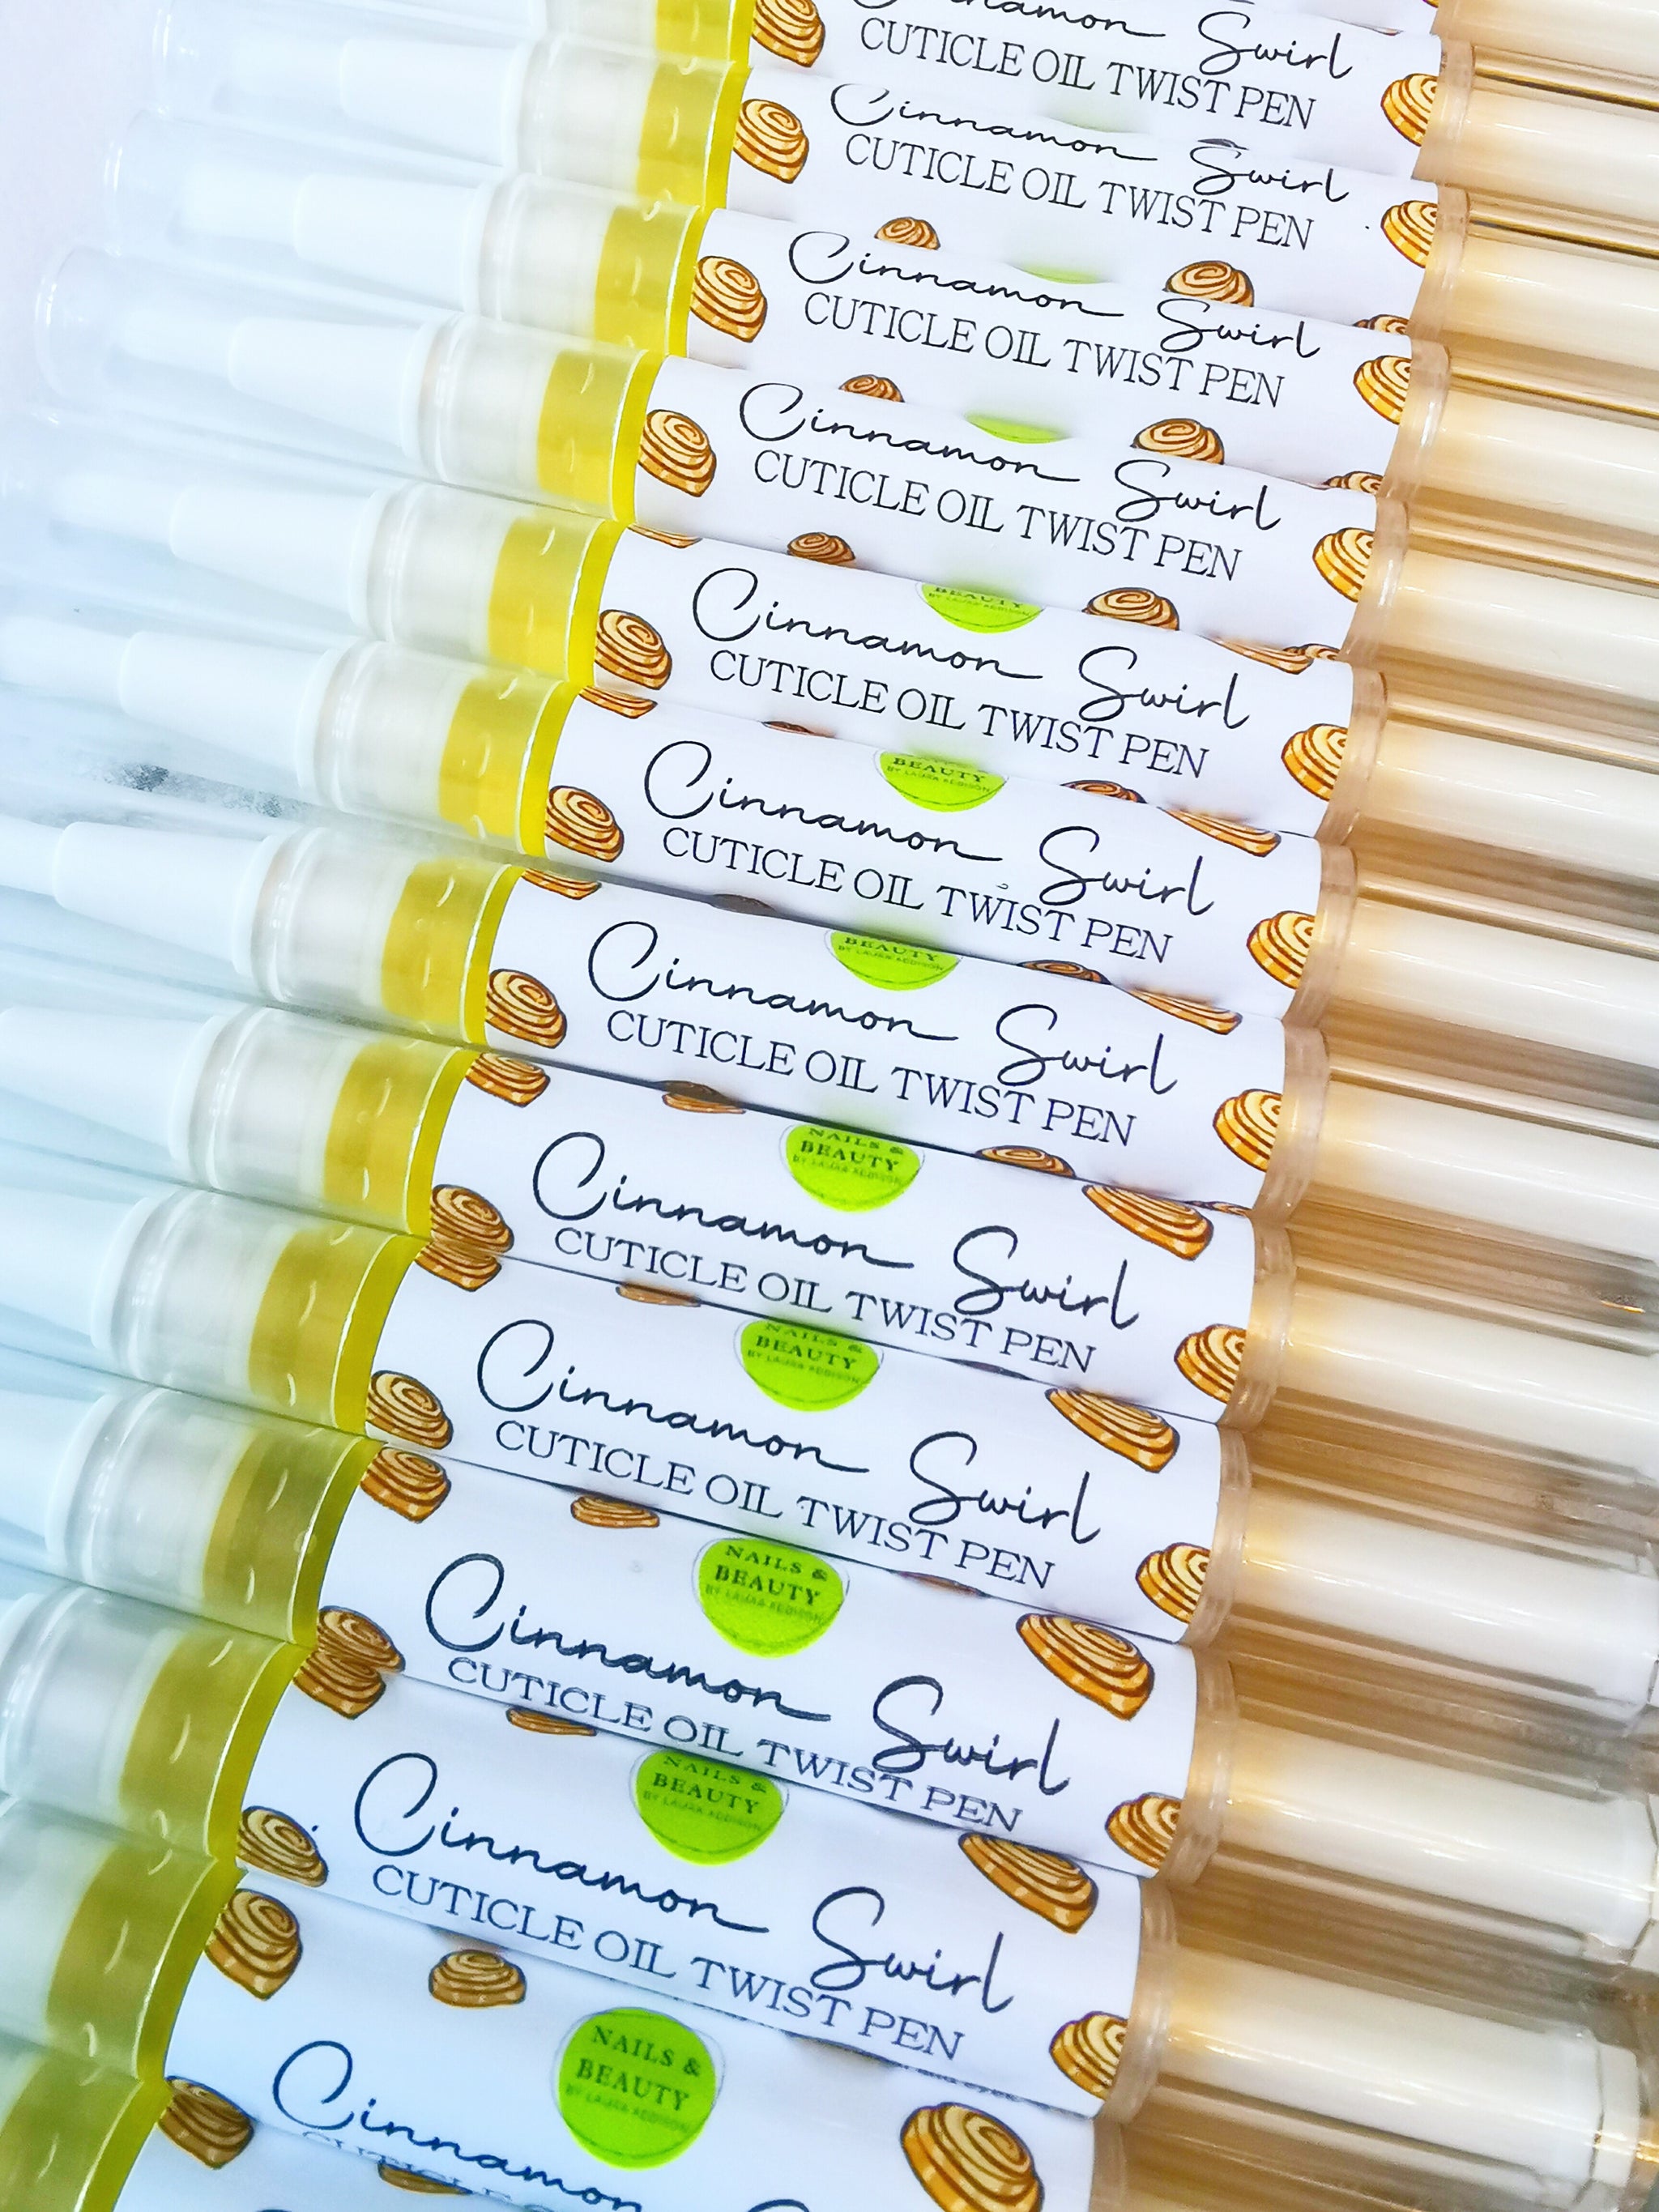 Cinnamon Swirl
CUTICLE OIL TWIST PEN
Cinnamon Swirl
CUTICLE OIL TWIST PEN
Cinnamon Swirl
CUTICLE OIL TWIST PEN
Cinnamon Swirl
CUTICLE OIL TWIST PEN
BEAUTY
BY LAURA ADDISON
Cinnamon Swirl
CUTICLE OIL TWIST PEN
BEAUTY
BY LAURA ADDISON
Cinnamon Swirl
CUTICLE OIL TWIST PEN
BEAUTY
BY LAURA ADDISON
Cinnamon Swirl
CUTICLE OIL TWIST PEN
NAILS &
BEAUTY
BY LAURA ADDISON
Cinnamon Swirl
CUTICLE OIL TWIST PEN
NAILS &
BEAUTY
BY LAURA ADDISON
Cinnamon Swirl
CUTICLE OIL TWIST PEN
NAILS &
BEAUTY
BY LAURA ADDISON
Cinnamon Swirl
CUTICLE OIL TWIST PEN
NAILS &
BEAUTY
BY LAURA ADDISON
Cinnamon Swirl
CUTICLE OIL TWIST PEN
NAILS &
BEAUTY
BY LAURA ADDISON
Cinnamon